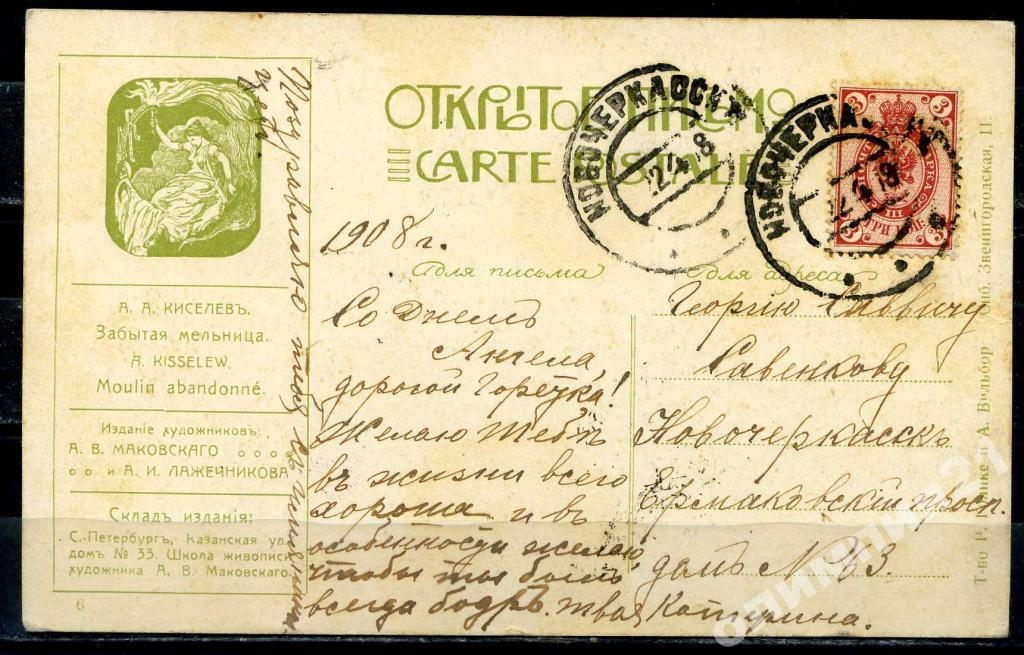 ОТКРЫТОЕ ПИСЬМО
CARTE POSTALE
НОВОЧЕРКАССКЪ
22 4 8
НОВОЧЕРКА
3
3
3
ТРИ КОП.
1908 г.
Для письма
Для адреса
Со Днемъ
Ангела,
дорогой Горечка!
Желаю тебѣ
въ жизни всего
хорошаго и въ
особенности желаю,
чтобы ты былъ
всегда бодръ. твоя Катерина.
Георгію Саввичу
Савенкову
Новочеркасскъ
Ермаковскій просп.
домъ № 63.
Поздравляю тебя съ
А. А. КИСЕЛЕВЪ.
Забытая мельница.
A. KISSELEW.
Moulin abandonné.
Изданіе художниковъ:
А. В. МАКОВСКАГО
и А. И. ЛАЖЕЧНИКОВА
Складъ изданія:
С.-Петербургъ, Казанская ул.
домъ № 33. Школа живописи
художника А. В. Маковскаго.
6
Т-во Р. Голике и А. Вильборг Спб. Звенигородская, 11
олимпик21